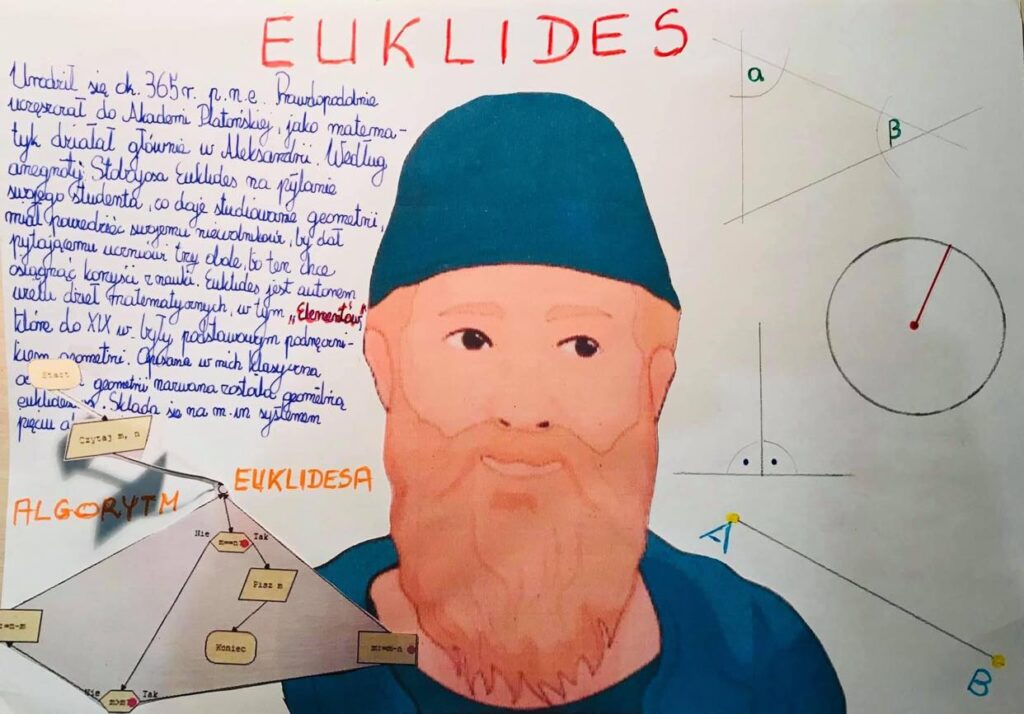 EUKLIDES
Urodził się ok. 365 r. p.n.e. Prawdopodobnie
uczęszczał do Akademi Platońskiej, jako matema-
tyk działał głównie w Aleksandrii. Według
anegdoty Stobajosa Euklides na pytanie
swojego studenta, co daje studiowanie geometrii,
miał powiedzieć swojemu niewolnikowi, by dał
pytającemu uczniowi trzy obole, bo ten chce
osiągnąć korzyści z nauki. Euklides jest autorem
wielu dzieł matematycznych, w tym „Elementów"
które do XIX w. były podstawowym podręczni-
kiem geometrii. Opisana w nich klasyczna
geometrii nazwana została geometrią
Składa się na m.in systemem
pięciu
Start
Czytaj m, n
ALGORYTM EUKLIDESA
Nie m==n Tak
Pisz m
Koniec
:=n-m
m:=m-n
Nie Tak
α
β
A
B